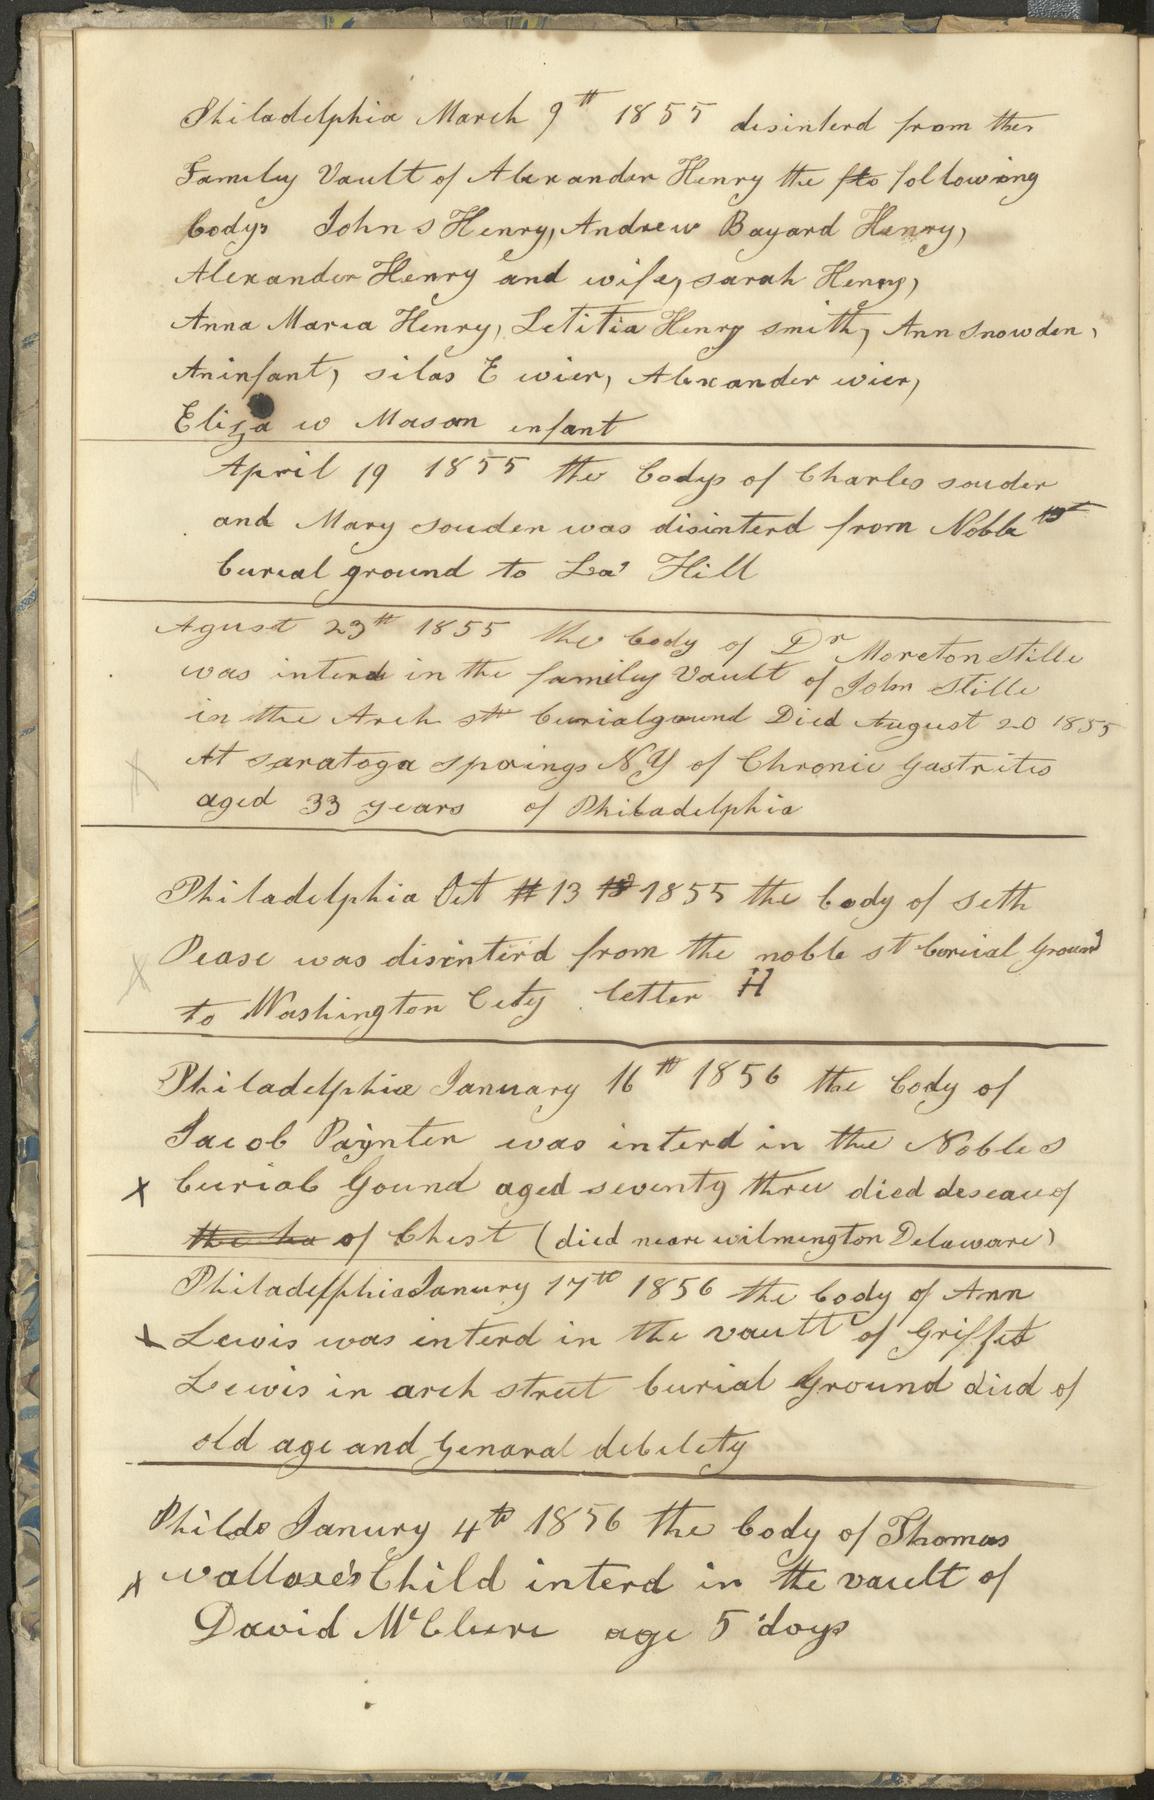 Philadelphia March 9th 1855 desinterd from the
Family Vault of Alexander Henry the fto following
bodys John s Henry, Andrew Bayard Henry,
Alexander Henry and wife, sarah Henry,
Anna Maria Henry, Letitia Henry smith, Ann Snowden,
An infant, silas E wier, Alexander wier,
Eliza w Mason infant
April 19 1855 the bodys of Charles souder
and Mary souder was disinterd from Noble st
burial ground to La' Hill
Agust 23th 1855 the body of Dr Moreton Stille
was interd in the family Vault of John Stille
in the Arch stt burialground Died August 20 1855
At saratoga springs N.Y of Chronic Gastrites
aged 33 years of Philadelphia
Philadelphia Oct 13 1855 the body of seth
Pease was disinter'd from the noble st burial Ground
to Washington City letter H
Philadelphia January 16th 1856 the body of
Jacob Paynter was interd in the Noble s
x burial Gound aged seventy three died deseau of
the ha of Chest (died neare wilmington Delaware)
Philadelphia Janury 17th 1856 the body of Ann
x Lewis was interd in the vault of Griffet
Lewis in arch street burial Ground died of
old age and Genaral debelety
Philda Janury 4th 1856 the body of Thomas
x wallace's Child interd in the vault of
David McClure age 5 days